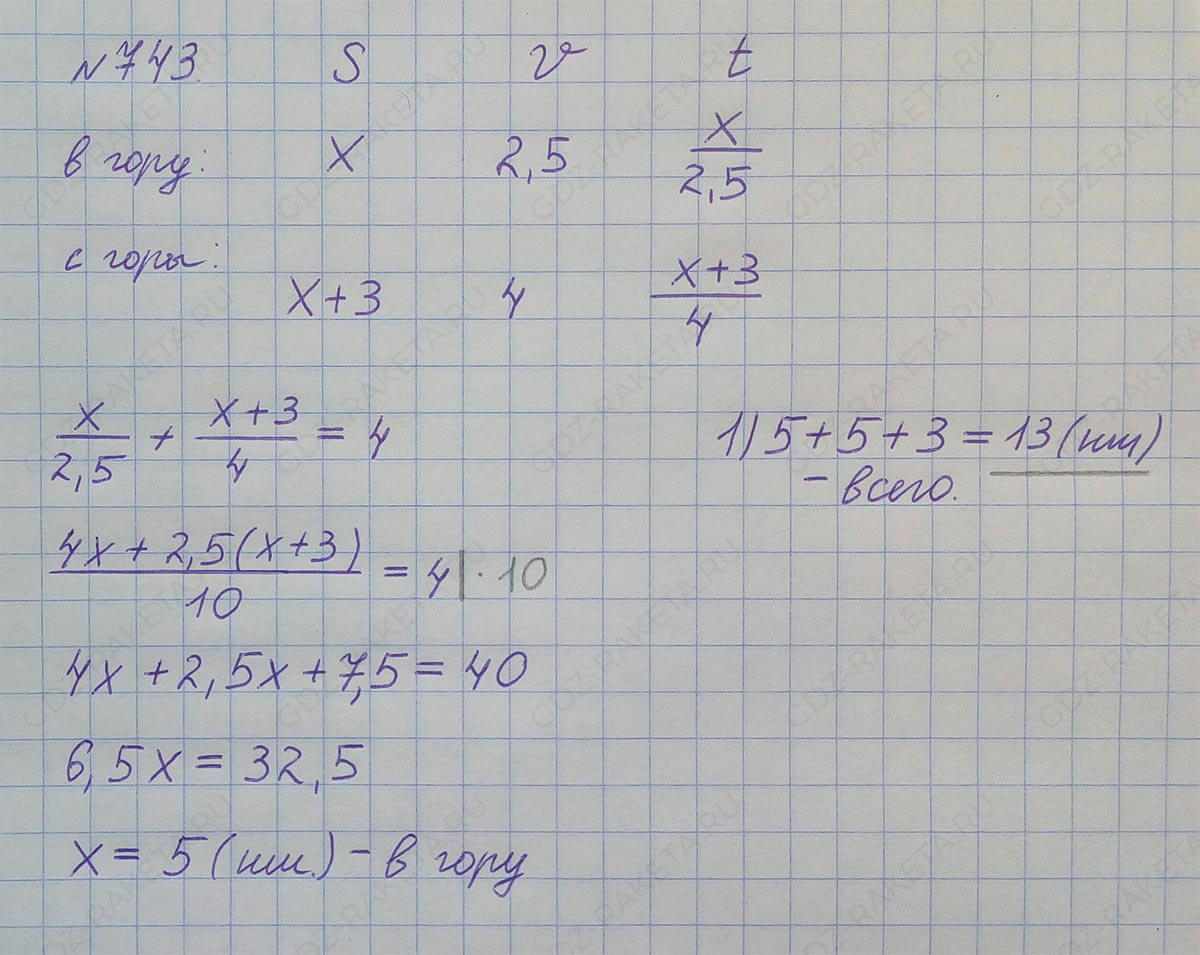 №743. S v t
в гору: x 2,5 x/2,5
с горы:
x+3 4 (x+3)/4
x/2,5 + (x+3)/4 = 4
(4x + 2,5(x+3))/10 = 4 | · 10
4x + 2,5x + 7,5 = 40
6,5x = 32,5
x = 5 (км.) - в гору
1) 5 + 5 + 3 = 13 (км)
- всего.
GDZ-RAKETA.RU